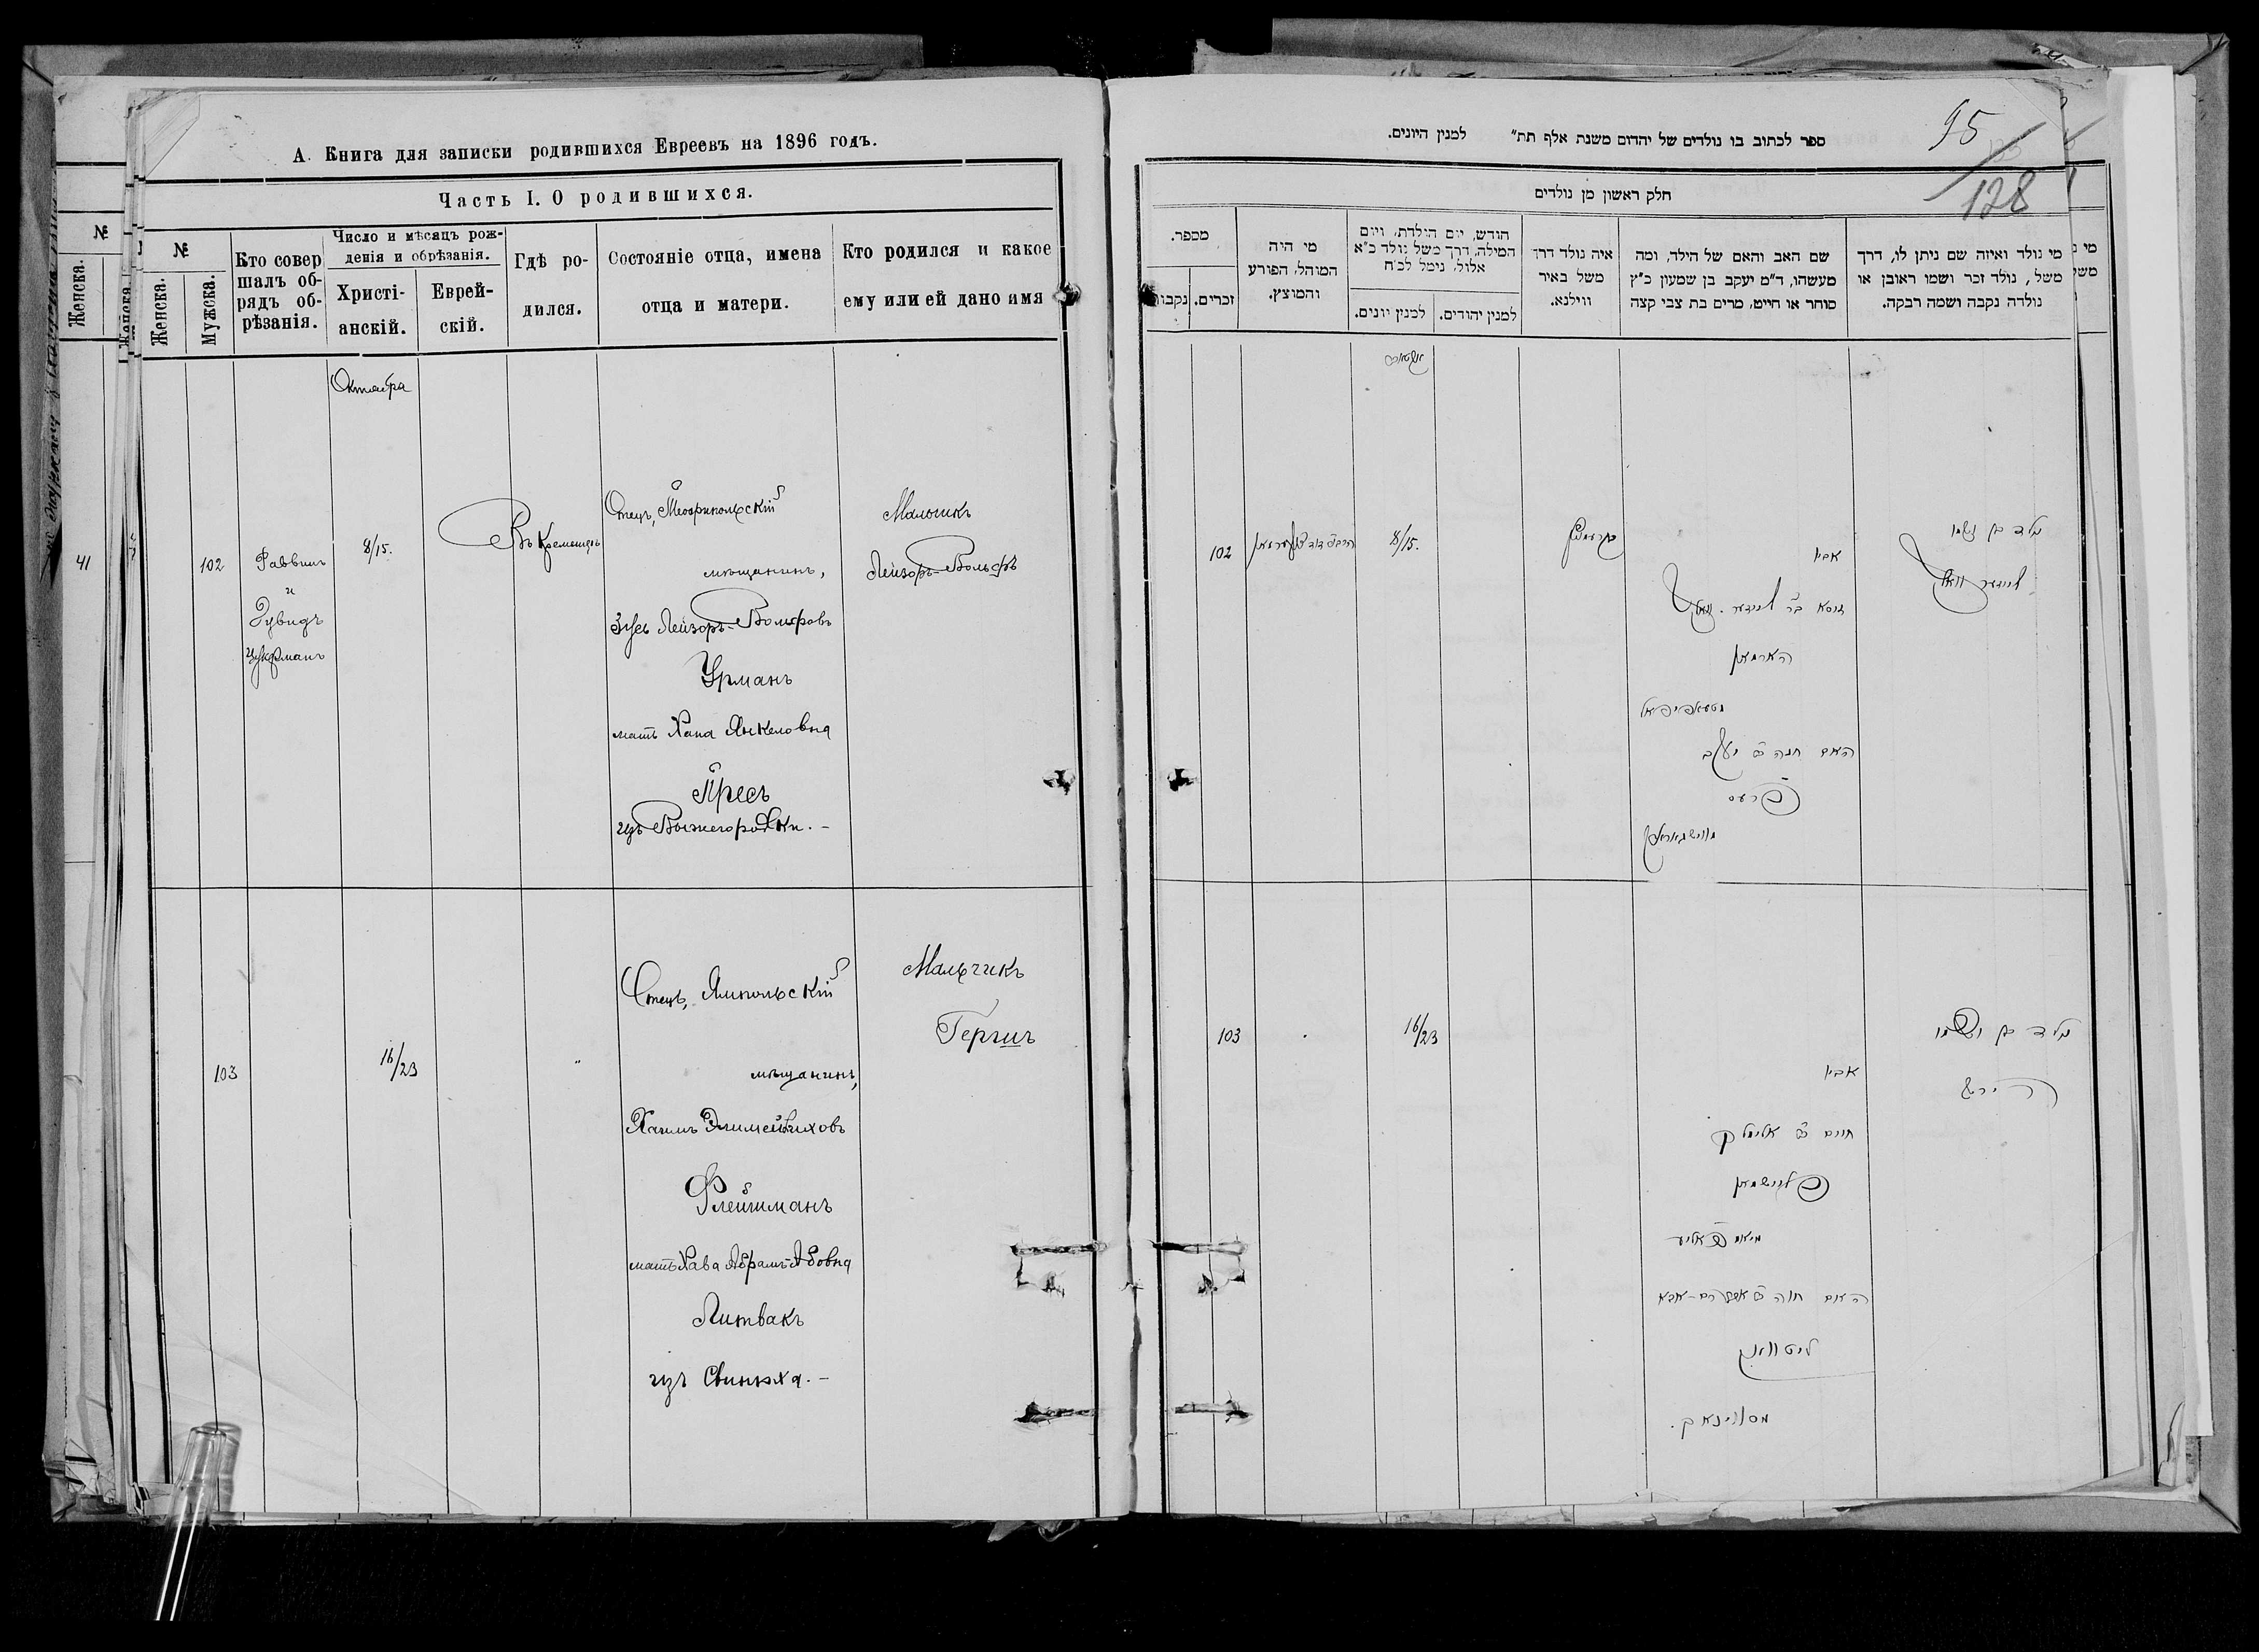 А. Книга для записки родившихся Евреевъ на 1896 годъ.
Часть I. О родившихся.
№
Женска.
Мужска.
Кто совер
шалъ об-
рядъ об-
рѣзанія.
Число и мѣсяцъ рож-
денія и обрѣзанія.
Христі-
анскій.
Еврей-
скій.
Гдѣ ро-
дился.
Состояніе отца, имена
отца и матери.
Кто родился и какое
ему или ей дано имя
№
Женска.
41
Октября
102
Раввинъ
и
Дувидъ
Цукрманъ
8/15.
Въ Кременцѣ
Отецъ,
мѣщанинъ,
Зусь Лейзоръ-Вольфовъ
Урманъ
мать Хана Янкеловна
Пресъ
изъ Вышегородки. -
Мальчикъ
Лейзоръ-Вольфъ
103
16/23
"
Отецъ, Ямпольскій
мѣщанинъ,
Хаимъ Элимейлиховъ
Флейшманъ
мать Хава Абрамъ-Абовна
Литвакъ
изъ Свинюха. -
Мальчикъ
Гершъ
95
128
ספר לכתוב בו נולדים של יהדום משנת אלף תת״ למנין היונים.
חלק ראשון מן נולדים
מי נולד ואיזה שם ניתן לו, דרך
משל, נולד זכר ושמו ראובן או
נולדה נקבה ושמה רבקה.
שם האב והאם של הילד, ומה
מעשהו, ד״מ יעקב בן שמעון כ״ץ
סוחר או חייט, מרים בת צבי קצה
איה נולד דרך
משל באיר
ווילנא.
חודש, יום הולדת, ויום
המילה, דרך משל נולד כ״א
אלול, נימל לכ״ח
למנין יהודים.
למנין יונים.
מי היה
המוהל, הפורע
והמוצץ.
מספר.
זכרים.
נקבות
102
8/15.
אביו
הארמאן
האם חנה יעקב
פרעס
103
16/23
אביו
חיים אלימלך
פליישמאן
ליטוואק
הירש